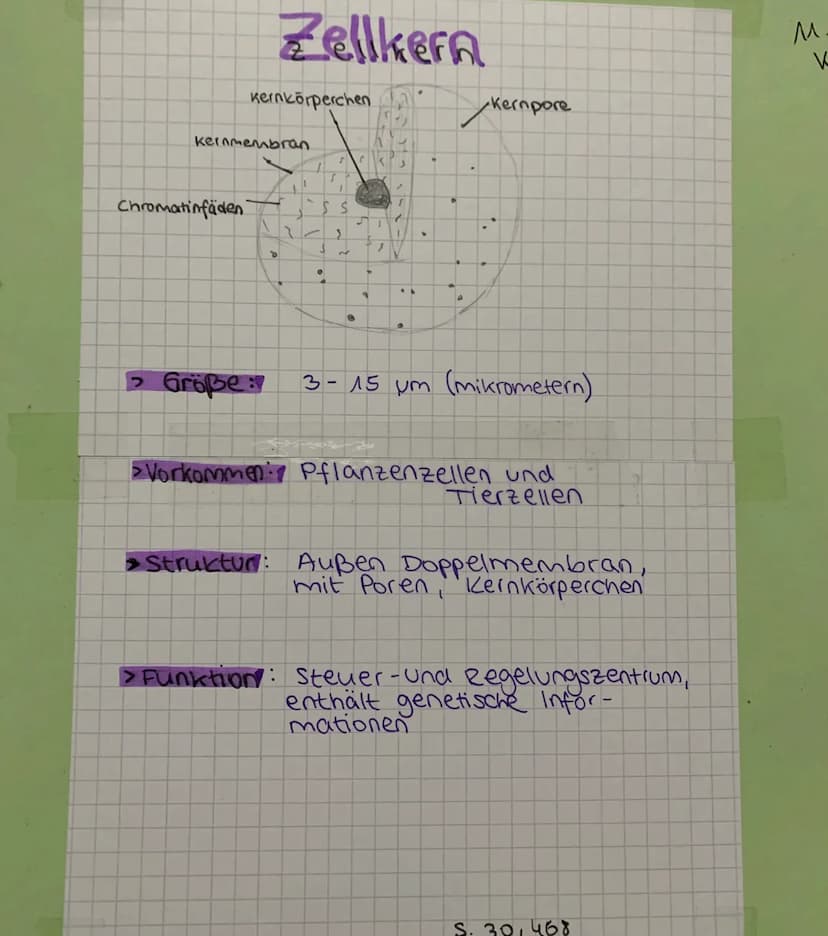 Zellkern
Kernkörperchen
Kernpore
Kernmembran
Chromatinfäden
> Größe: 3 - 15 µm (mikrometern)
> Vorkommen: Pflanzenzellen und
Tierzellen
> Struktur: Außen Doppelmembran,
mit Poren, Kernkörperchen
> Funktion: Steuer- und Regelungszentrum,
enthält genetische Infor-
mationen
S. 30, 468